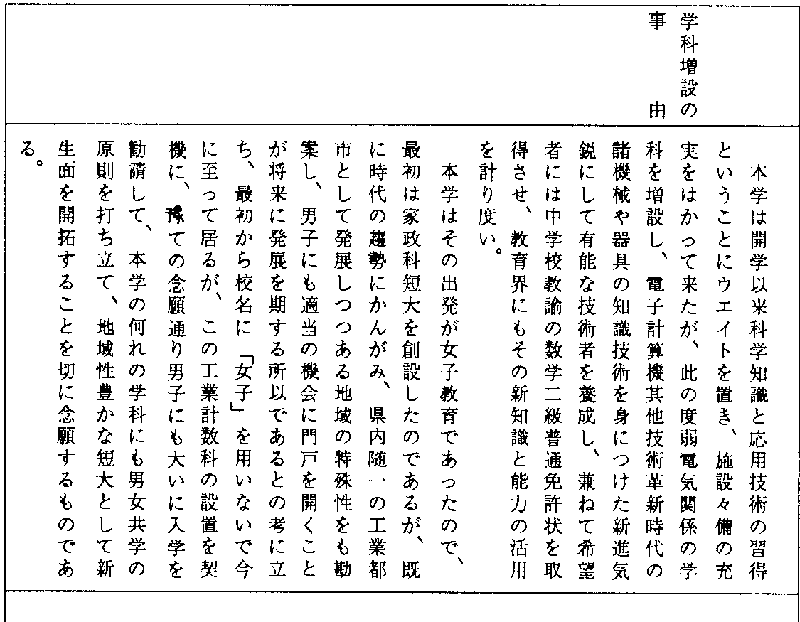 学科増設の
事由
本学は開学以来科学知識と応用技術の習得
ということにウエイトを置き、施設々備の充
実をはかって来たが、此の度弱電気関係の学
科を増設し、電子計算機其他技術革新時代の
諸機械や器具の知識技術を身につけた新進気
鋭にして有能な技術者を養成し、兼ねて希望
者には中学校教諭の数学二級普通免許状を取
得させ、教育界にもその新知識と能力の活用
を計り度い。
本学はその出発が女子教育であったので、
最初は家政科短大を創設したのであるが、既
に時代の趨勢にかんがみ、県内随一の工業都
市として発展しつつある地域の特殊性をも勘
案し、男子にも適当の機会に門戸を開くこと
が将来に発展を期する所以であるとの考に立
ち、最初から校名に「女子」を用いないで今
に至って居るが、この工業計数科の設置を契
機に、豫ての念願通り男子にも大いに入学を
勧請して、本学の何れの学科にも男女共学の
原則を打ち立て、地域性豊かな短大として新
生面を開拓することを切に念願するものであ
る。